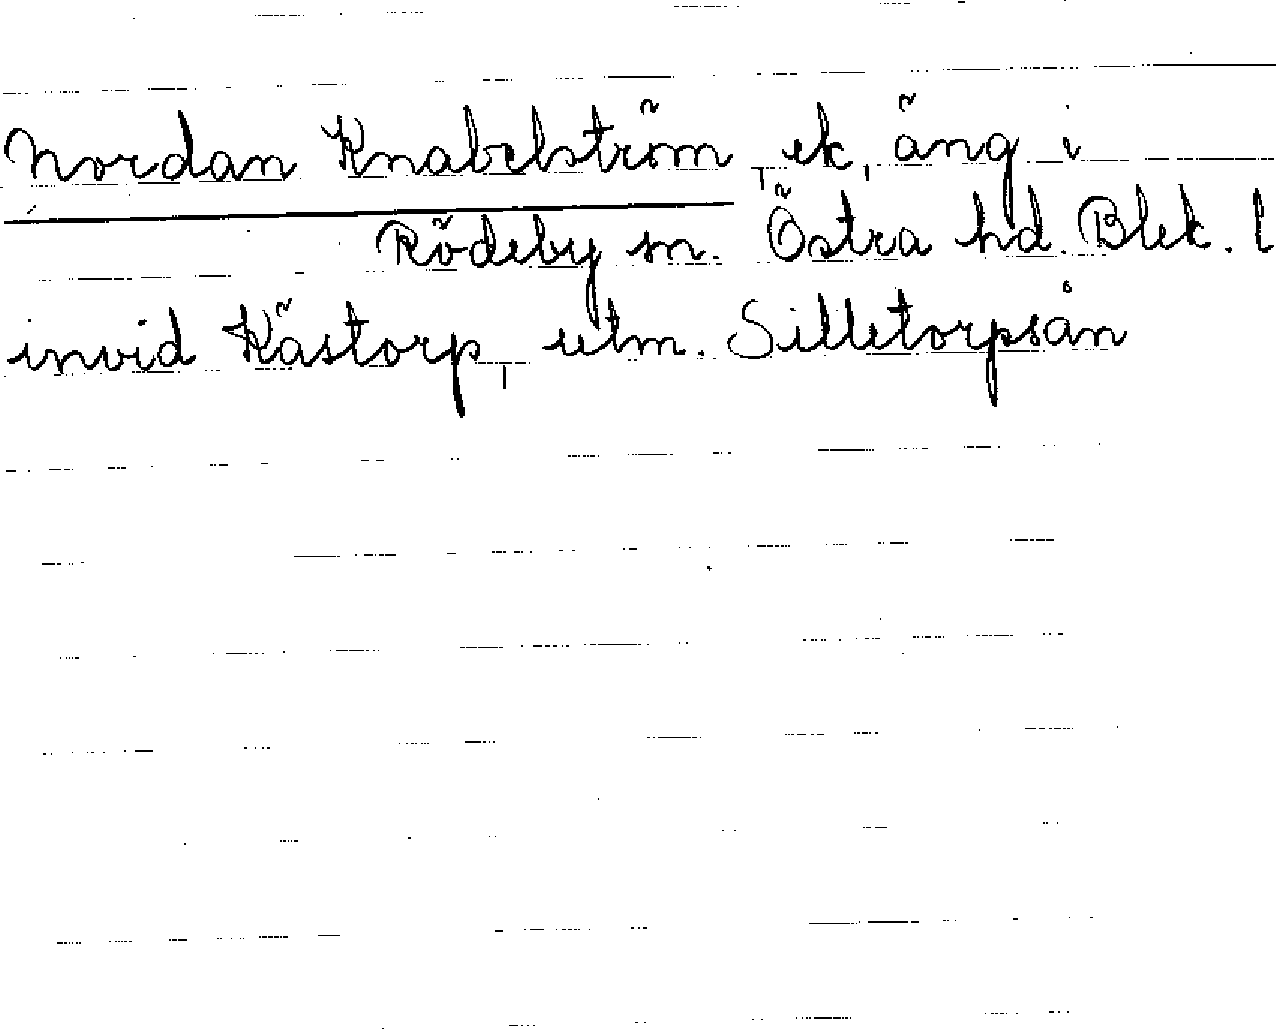 Nordan Knabelström, ek, äng i
Rödeby sn. Östra hd. Blek. l
invid Kästorp, utm. Silletorpsån